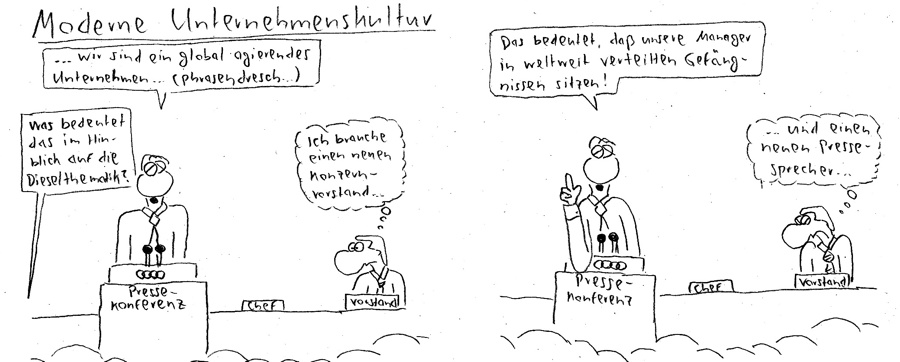 Moderne Unternehmenskultur
... wir sind ein global agierendes
Unternehmen... (phrasendresch...)
Was bedeutet
das im Hin-
blick auf die
Dieselthematik?
Ich brauche
einen neuen
Konzern-
vorstand...
Presse-
Konferenz
Chef
Vorstand
Das bedeutet, daß unsere Manager
in weltweit verteilten Gefäng-
nissen sitzen!
... und einen
neuen Presse-
sprecher...
Presse-
Konferenz
Chef
Vorstand